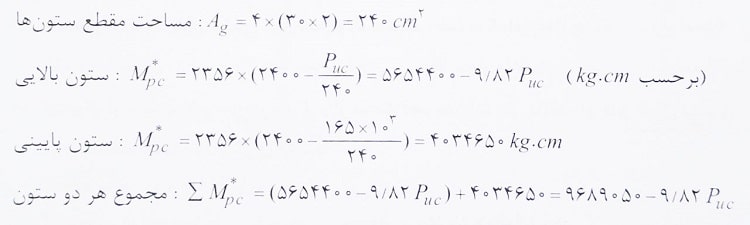 مساحت مقطع ستون‌ها : A_g = ۴ × (۳۰ × ۲) = ۲۴۰ cm^۲
ستون بالایی : M_pc^* = ۲۳۵۶ × (۲۴۰۰ − P_uc / ۲۴۰) = ۵۶۵۴۴۰۰ − ۹/۸۲ P_uc (برحسب kg.cm)
ستون پایینی : M_pc^* = ۲۳۵۶ × (۲۴۰۰ − ۱۶۵×۱۰^۳ / ۲۴۰) = ۴۰۳۴۶۵۰ kg.cm
مجموع هر دو ستون : ∑ M_pc^* = (۵۶۵۴۴۰۰ − ۹/۸۲ P_uc) + ۴۰۳۴۶۵۰ = ۹۶۸۹۰۵۰ − ۹/۸۲ P_uc